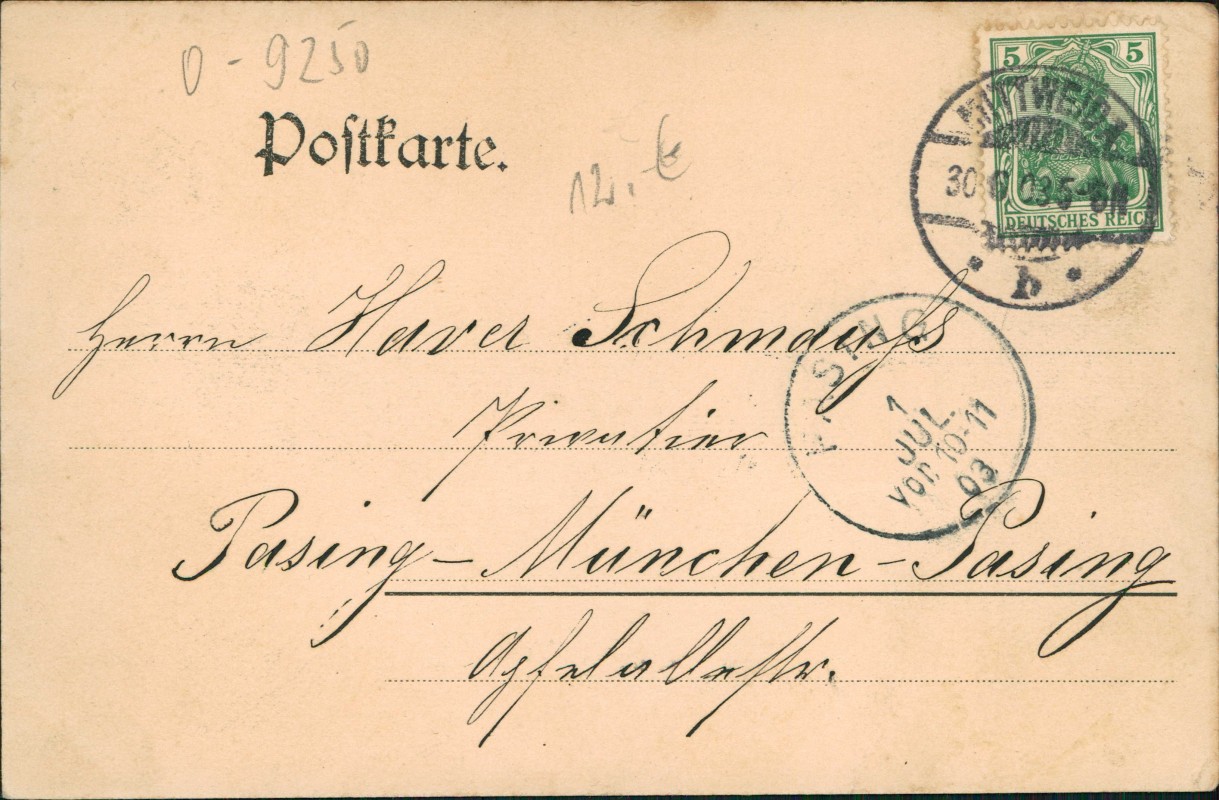 0-9250
Postkarte.
12.€
5 5
DEUTSCHES REICH
MITTWEIDA
30 6 03 5-6N
b
PASING
1
JUL.
Vor. 10-11
03
Herrn Xaver Schmauß
Privatier
Pasing-München-Pasing
Apfelallestr.